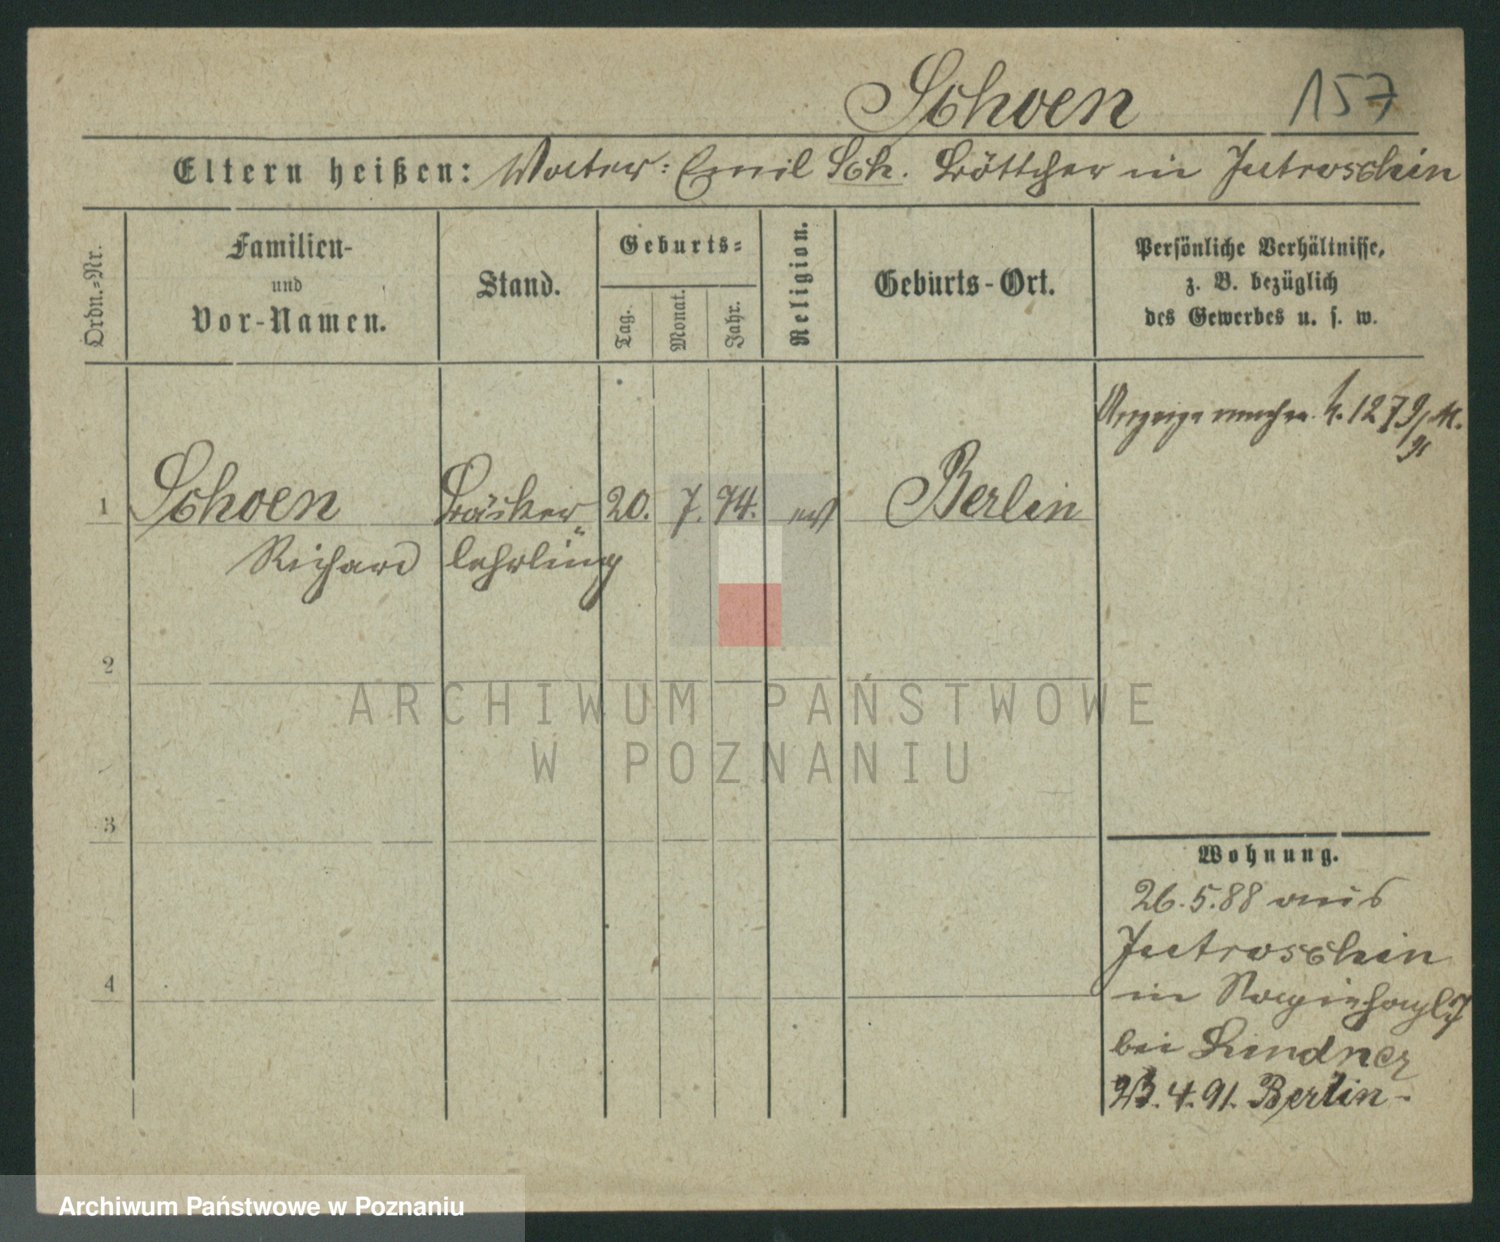 Schoen 157
Eltern heißen: Vater: Emil Sch. Böttcher in Jutroschin
Ordn.-Nr.
Familien-
und
Vor-Namen.
Stand.
Geburts-
Tag.
Monat.
Jahr.
Religion.
Geburts-Ort.
Persönliche Verhältnisse,
z. B. bezüglich
des Gewerbes u. s. w.
1 Schoen Bäcker 20. 7. 74. ev Berlin
Richard lehrling
2
3
4
Wohnung.
26.5.88 aus
Jutroschin
in
bei Lindner
23.4.91. Berlin-
ARCHIWUM PAŃSTWOWE
W POZNANIU
Archiwum Państwowe w Poznaniu